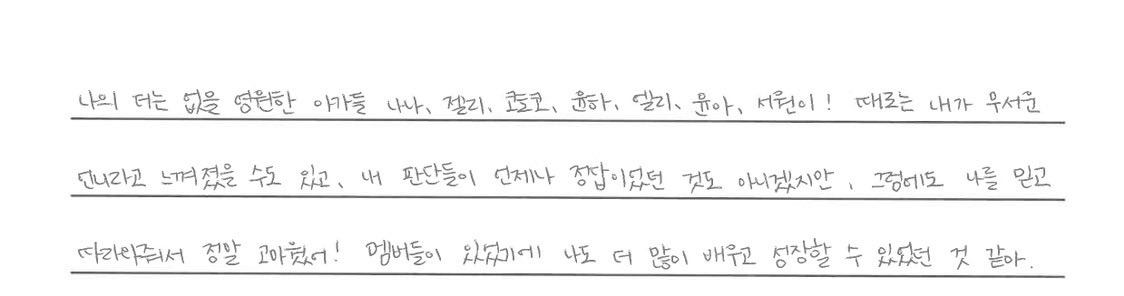 나의 더는 없을 영원한 아가들 나나, 젤리, 코코, 윤하, 엘리, 윤아, 서원이! 때로는 내가 무서운
언니라고 느껴졌을 수도 있고, 내 판단들이 언제나 정답이었던 것도 아니겠지만, 그럼에도 나를 믿고
따라와줘서 정말 고마웠어! 멤버들이 있었기에 나도 더 많이 배우고 성장할 수 있었던 것 같아.